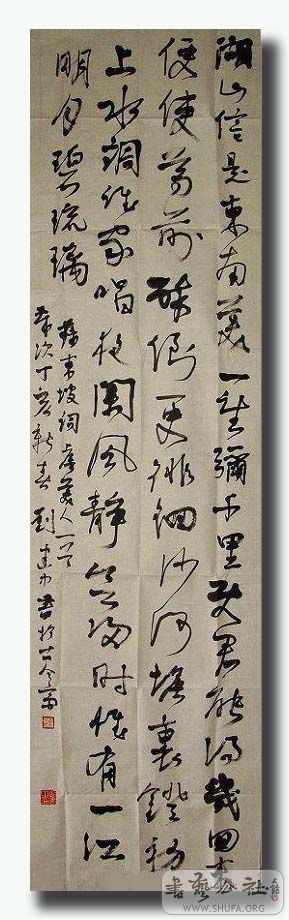 湖山信是東南美一望彌千里使君能得幾回來
便使尊前醉倒更徘徊沙河塘裏鐙初
上水調誰家唱夜闌風静欲歸時惟有一江
明月碧琉璃
蘇東坡詞虞美人一首
歲次丁亥新春劉建書於古今
書藝公社
WWW.SHUFA.ORG